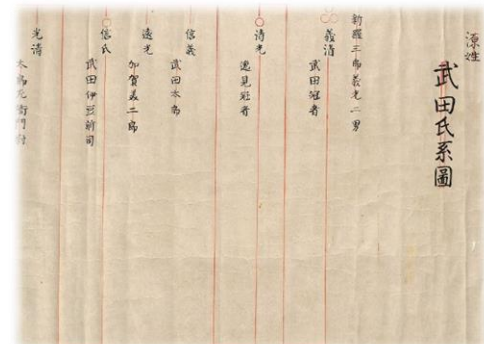 源姓
武田氏系圖
新羅三郎義光二男
義清
武田冠者
清光
逸見冠者
信義
武田太郎
遠光
加賀美二郎
信氏
武田伊豆前司
光清
太郎左衛門尉